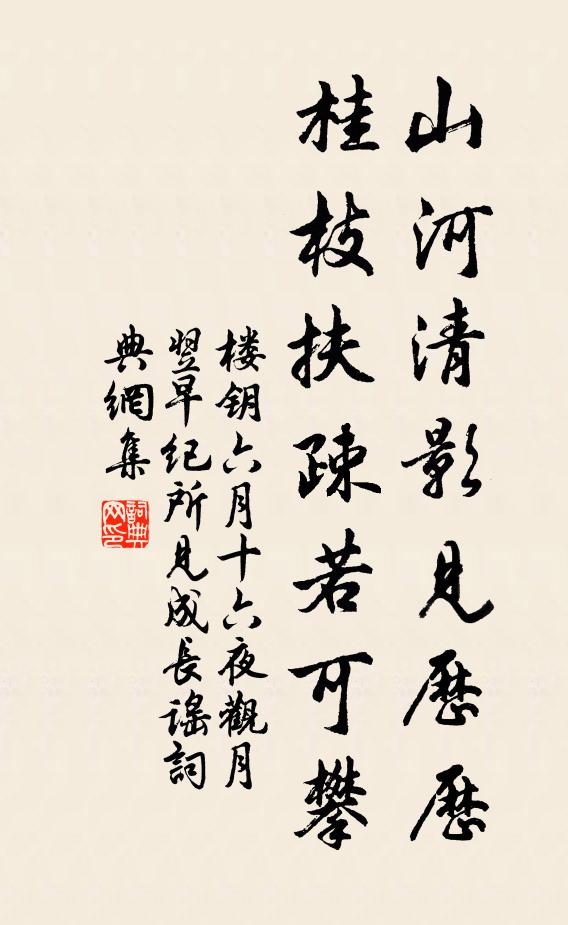 山河清影見歷歷
桂枝扶疎若可攀
楼钥六月十六夜觀月
翌早纪所見成長謠詞
典網集
詞典網印